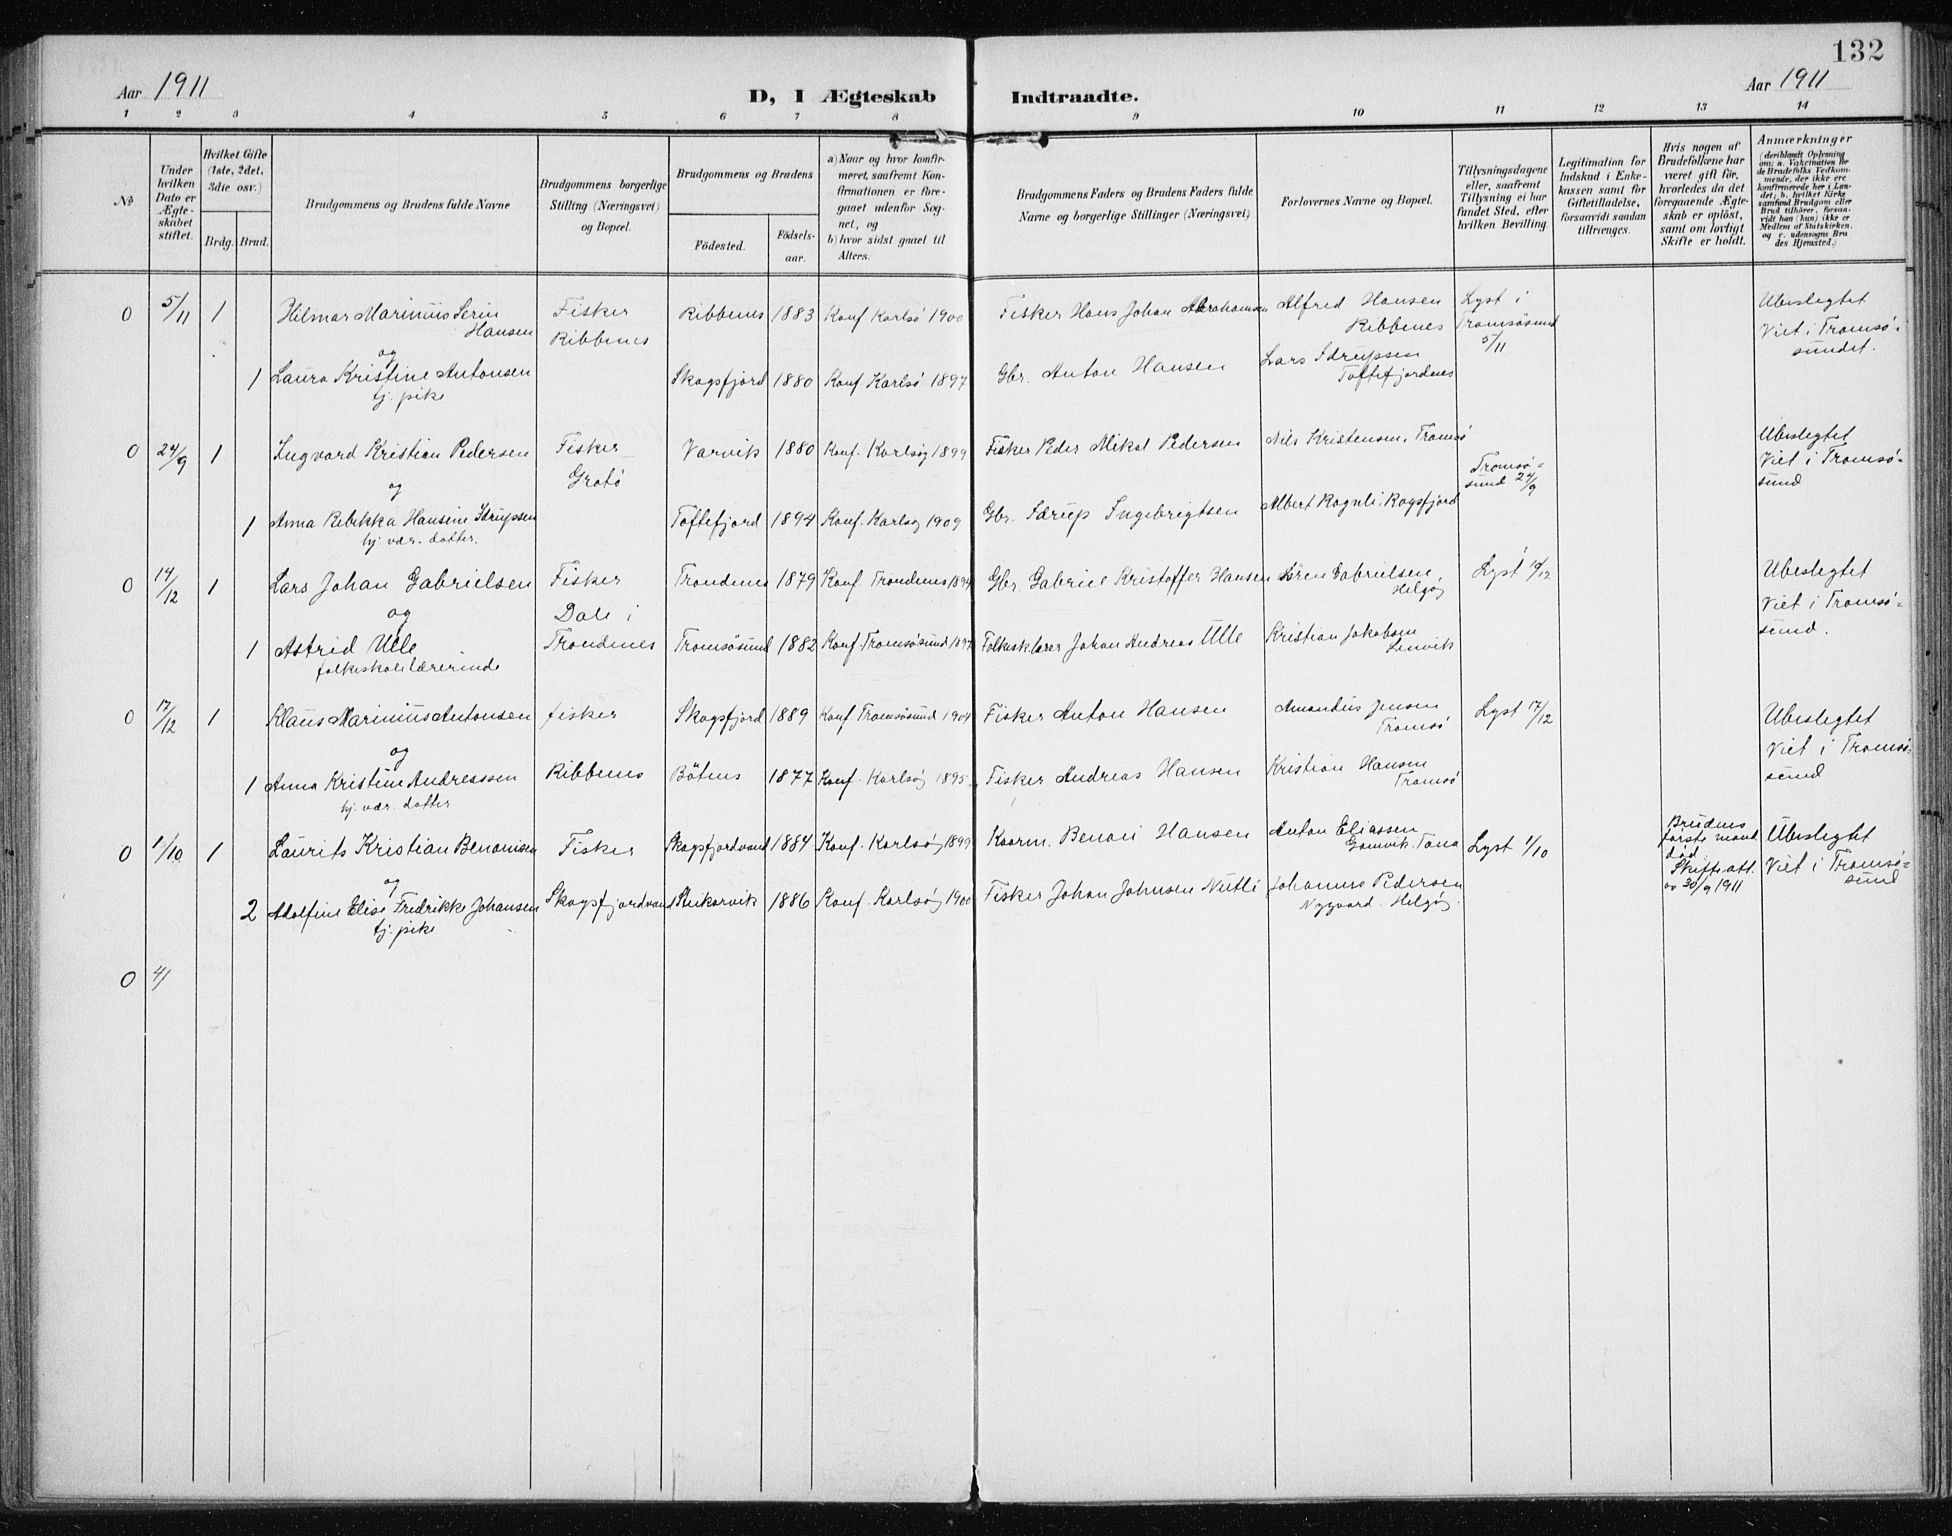 132
Aar 1911
D, I Ægteskab Indtraadte.
Aar 1911
1 2 3 4 5 6 7 8 9 10 11 12 13 14
No
Under hvilken Dato er Ægteskabet stiftet.
Hvilket Gifte (1ste, 2det, 3die osv.)
Brdg. Brud.
Brudgommens og Brudens fulde Navne
Brudgommens borgerlige Stilling (Næringsvei) og Bopæl.
Brudgommens og Brudens
Fødested. Fødselsaar.
a) Naar og hvor konfirmeret, saafremt Konfirmationen er foregaaet udenfor Sognet, og
b) hvor sidst gaaet til Alters.
Brudgommens Faders og Brudens Faders fulde Navne og borgerlige Stillinger (Næringsvei)
Forlovernes Navne og Bopæl.
Tillysningsdagene eller, saafremt Tillysning ei har fundet Sted, efter hvilken Bevilling.
Legitimation for Indskud i Enkekassen samt for Giftetilladelse, forsaavidt saadan tiltrænges.
Hvis nogen af Brudefolkene har været gift før, hvorledes da det foregaaende Ægteskab er opløst, samt om lovligt Skifte er holdt.
Anmærkninger
(deriblandt Oplysning om: a. Vakcination for de Brudefolks Vedkommende, der ikke ere konfirmerede her i Landet; b. hvilket Kirkesamfund Brudgom eller Brud tilhører, forsaavidt han (hun) ikke er Medlem af Statskirken, og c. udensogns Brudes Hjemsted.)
0 5/11 1 Hilmar Marinius Serin Hansen Fisker Ribbenes Ribbenes 1883 Konf Karlsö 1900 Fisker Hans Johan Abrahamsen Alfred Hansen Ribbenes Lyst i Tromsösund 5/11 Ubeslegtet Viet i Tromsösundet.
og
1 Laura Kristine Antonsen Skogsfjord 1880 Konf Karlsö 1897 Gbr. Anton Hansen Lars Idrupsen Toftefjordnes
tj. pike
0 24/9 1 Ingvard Kristian Pedersen Fisker Grotö Varvik 1880 Konf. Karlsöy 1899 Fisker Peder Mikal Pedersen Nils Kristensen, Tromsö Tromsösund 24/9 Ubeslegtet Viet i Tromsösund
og
1 Anna Rebikka Hansine Idrupsen Toftefjord 1894 Konf. Karlsøy 1909 Gbr. Idrup Ingebrigtsen Albert Rognli, Rogsfjord
hj. vær. datter.
0 14/12 1 Lars Johan Gabrielsen Fisker Dale i Trondenes Trondenes 1879 Konf Trondenes 1894 Gbr. Gabriel Kristoffer Hansen Sören Gabrielsen, Helgöy Lyst 14/12 Ubeslegtet Viet i Tromsösund.
og
1 Astrid Ulle Tromsösund 1882 Konf. Tromsösund 1897 Folkesk.lærer Johan Andreas Ulle Kristian Jakobsen Lenvik
folkeskolelærerinde
0 17/12 1 Klaus Marinius Antonsen fisker Ribbenes Skogsfjord 1889 Konf Tromsösund 1904 Fisker Anton Hansen Amandus Jensen Tromsö Lyst 17/12 Ubeslegtet Viet i Tromsösund
og
1 Anna Kristine Andreassen Bötnes 1877 Konf. Karlsöy 1895 Fisker Andreas Hansen Kristian Hansen Tromsö
hj. vær. datter
0 1/10 1 Laurits Kristian Benonisen Fisker Skogsfjordvand Skogsfjordvand 1884 Konf. Karlsöy 1899 Kaarm. Benoni Hansen Anton Eliassen Gamvik. Tana Lyst 1/10 Brudens første mand död Skifteatt. av 30/9 1911 Ubeslegtet Viet i Tromsösund
og
2 Adolfine Elise Fredrikke Johansen 1886 Konf. Karlsöy 1900 Fisker Johan Johnsen Nutli Johannes Pedersen Nygaard. Helgöy.
tj. pike
0 4/